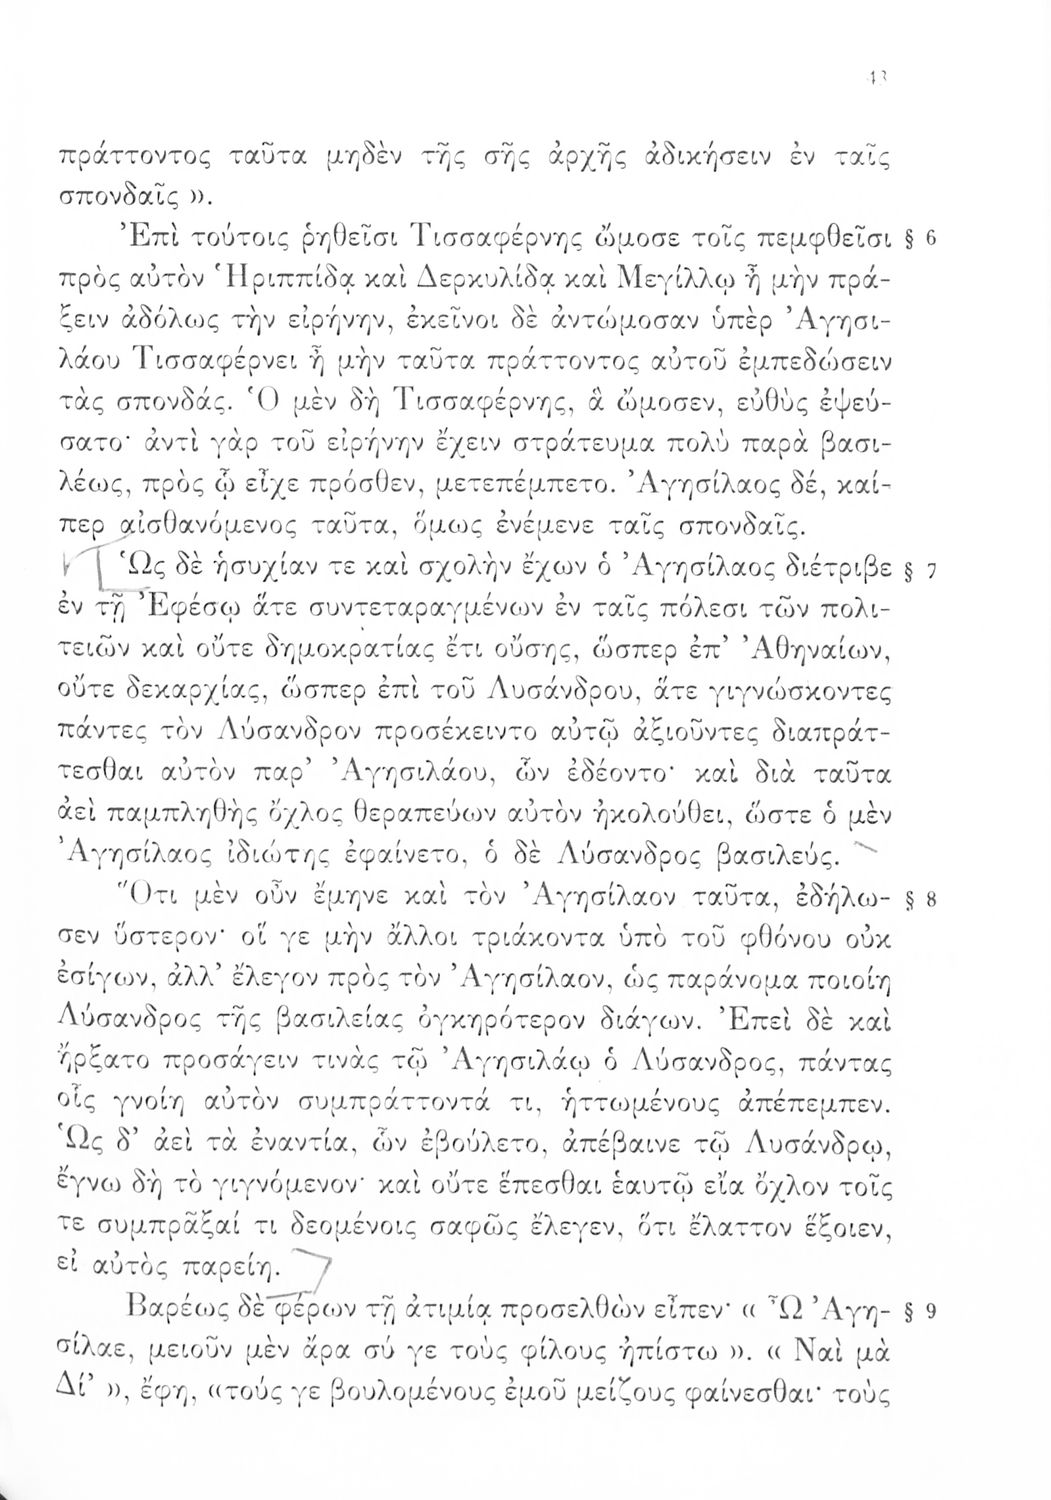 43
πράττοντος ταῦτα μηδὲν τῆς σῆς ἀρχῆς ἀδικήσειν ἐν ταῖς
σπονδαῖς ».
Ἐπὶ τούτοις ῥηθεῖσι Τισσαφέρνης ὤμοσε τοῖς πεμφθεῖσι § 6
πρὸς αὐτὸν Ἡριππίδᾳ καὶ Δερκυλίδᾳ καὶ Μεγίλλῳ ἦ μὴν πρά-
ξειν ἀδόλως τὴν εἰρήνην, ἐκεῖνοι δὲ ἀντώμοσαν ὑπὲρ Ἀγησι-
λάου Τισσαφέρνει ἦ μὴν ταῦτα πράττοντος αὐτοῦ ἐμπεδώσειν
τὰς σπονδάς. Ὁ μὲν δὴ Τισσαφέρνης, ἃ ὤμοσεν, εὐθὺς ἐψεύ-
σατο· ἀντὶ γὰρ τοῦ εἰρήνην ἔχειν στράτευμα πολὺ παρὰ βασι-
λέως, πρὸς ᾧ εἶχε πρόσθεν, μετεπέμπετο. Ἀγησίλαος δέ, καί-
περ αἰσθανόμενος ταῦτα, ὅμως ἐνέμενε ταῖς σπονδαῖς.
Ὡς δὲ ἡσυχίαν τε καὶ σχολὴν ἔχων ὁ Ἀγησίλαος διέτριβε § 7
ἐν τῇ Ἐφέσῳ ἅτε συντεταραγμένων ἐν ταῖς πόλεσι τῶν πολι-
τειῶν καὶ οὔτε δημοκρατίας ἔτι οὔσης, ὥσπερ ἐπ’ Ἀθηναίων,
οὔτε δεκαρχίας, ὥσπερ ἐπὶ τοῦ Λυσάνδρου, ἅτε γιγνώσκοντες
πάντες τὸν Λύσανδρον προσέκειντο αὐτῷ ἀξιοῦντες διαπράτ-
τεσθαι αὐτὸν παρ’ Ἀγησιλάου, ὧν ἐδέοντο· καὶ διὰ ταῦτα
ἀεὶ παμπληθὴς ὄχλος θεραπεύων αὐτὸν ἠκολούθει, ὥστε ὁ μὲν
Ἀγησίλαος ἰδιώτης ἐφαίνετο, ὁ δὲ Λύσανδρος βασιλεύς.
Ὅτι μὲν οὖν ἔμηνε καὶ τὸν Ἀγησίλαον ταῦτα, ἐδήλω- § 8
σεν ὕστερον· οἵ γε μὴν ἄλλοι τριάκοντα ὑπὸ τοῦ φθόνου οὐκ
ἐσίγων, ἀλλ’ ἔλεγον πρὸς τὸν Ἀγησίλαον, ὡς παράνομα ποιοίη
Λύσανδρος τῆς βασιλείας ὀγκηρότερον διάγων. Ἐπεὶ δὲ καὶ
ἤρξατο προσάγειν τινὰς τῷ Ἀγησιλάῳ ὁ Λύσανδρος, πάντας
οἷς γνοίη αὐτὸν συμπράττοντά τι, ἡττωμένους ἀπέπεμπεν.
Ὡς δ’ ἀεὶ τὰ ἐναντία, ὧν ἐβούλετο, ἀπέβαινε τῷ Λυσάνδρῳ,
ἔγνω δὴ τὸ γιγνόμενον· καὶ οὔτε ἕπεσθαι ἑαυτῷ εἴα ὄχλον τοῖς
τε συμπρᾶξαί τι δεομένοις σαφῶς ἔλεγεν, ὅτι ἔλαττον ἕξοιεν,
εἰ αὐτὸς παρείη.
Βαρέως δὲ φέρων τῇ ἀτιμίᾳ προσελθὼν εἶπεν· « Ὦ Ἀγη- § 9
σίλαε, μειοῦν μὲν ἄρα σύ γε τοὺς φίλους ἠπίστω ». « Ναὶ μὰ
Δί’ », ἔφη, «τούς γε βουλομένους ἐμοῦ μείζους φαίνεσθαι· τοὺς